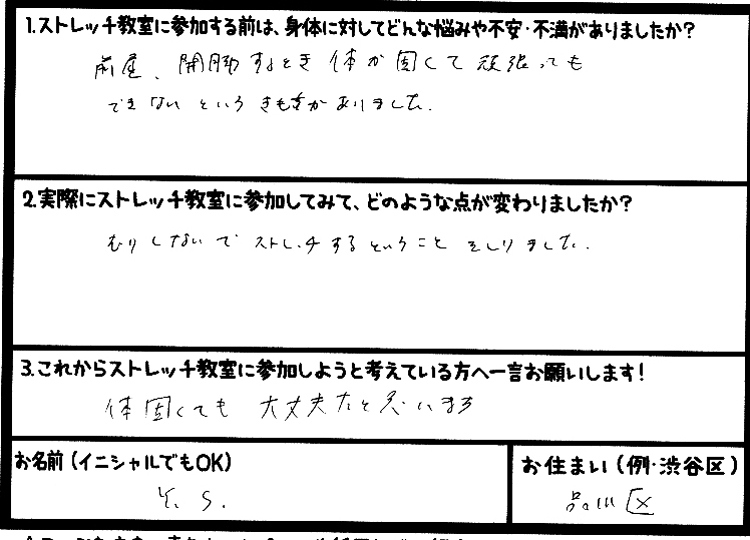 1.ストレッチ教室に参加する前は、身体に対してどんな悩みや不安・不満がありましたか?
前屈、開脚するとき体が固くて頑張っても
できないというきもちがありました.
2.実際にストレッチ教室に参加してみて、どのような点が変わりましたか?
むりしないでストレッチするということをしりました.
3.これからストレッチ教室に参加しようと考えている方へ一言お願いします!
体固くても大丈夫だと思います
お名前(イニシャルでもOK)
Y. S.
お住まい(例・渋谷区)
品川区